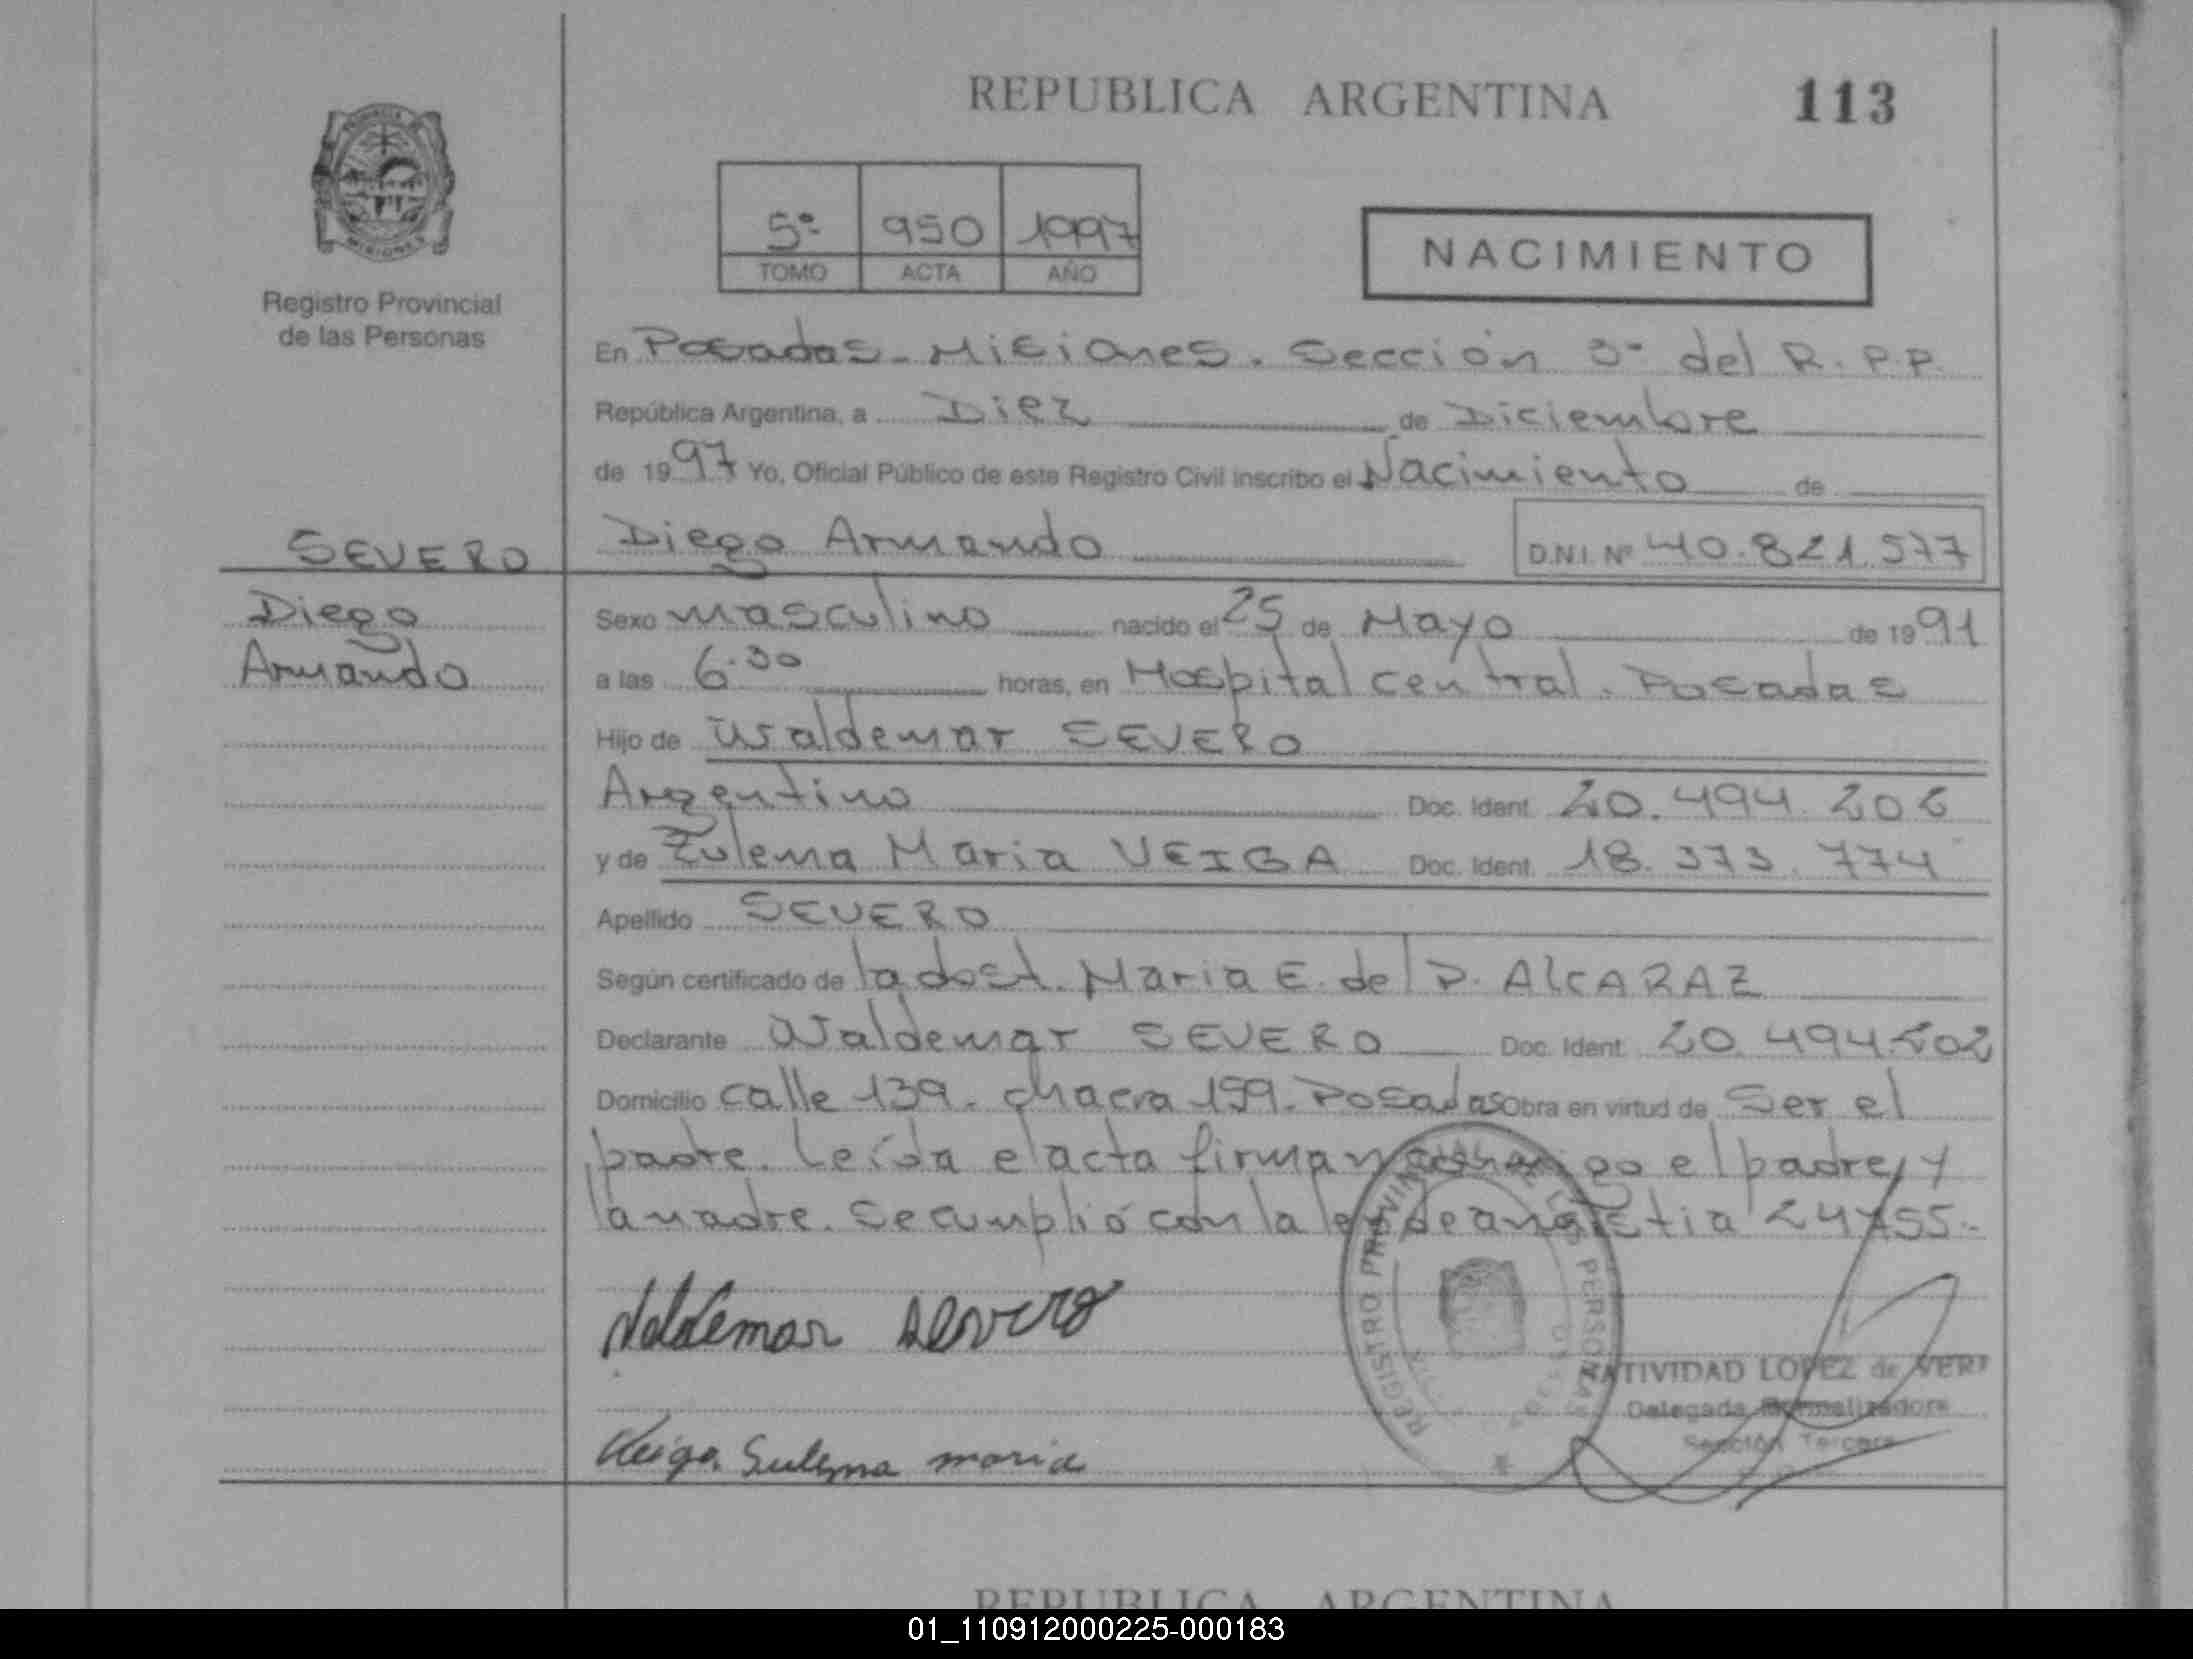 REPUBLICA ARGENTINA 113
5º 950 1997
TOMO ACTA AÑO
NACIMIENTO
Registro Provincial
de las Personas
En Posadas - Misiones. Sección 3º del R.P.P.
República Argentina, a Diez de Diciembre
de 1997 Yo, Oficial Público de este Registro Civil inscribo el Nacimiento de
SEVERO Diego Armando D.N.I. Nº 40.821.577
Diego
Armando
Sexo masculino nacido el 25 de Mayo de 1991
a las 6.30 horas, en Hospital central. Posadas
Hijo de Waldemar SEVERO
Argentino Doc. Ident. 20.494.202
y de Zulema Maria VEIGA Doc. Ident. 18.373.774
Apellido SEVERO
Según certificado de la dost. Maria E. del P. AlCARAZ
Declarante Waldemar SEVERO Doc. Ident. 20.494.202
Domicilio calle 139. chacra 159. Posadas Obra en virtud de Ser el
padre. Leída el acta firman conmigo el padre, y
la madre. Se cumplió con la ley de amnistia 24755.-
Waldemar Severo
REGISTRO PROVINCIAL DE LAS PERSONAS
NATIVIDAD LOPEZ de VERI
Delegada Normalizadora
Sección Tercera
Veiga Sulema maria
REPUBLICA ARGENTINA
01_110912000225-000183